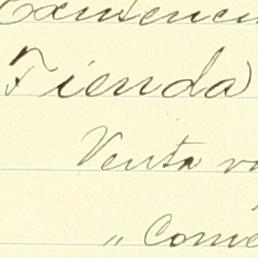 Existenci
Tienda
Venta va
" Come